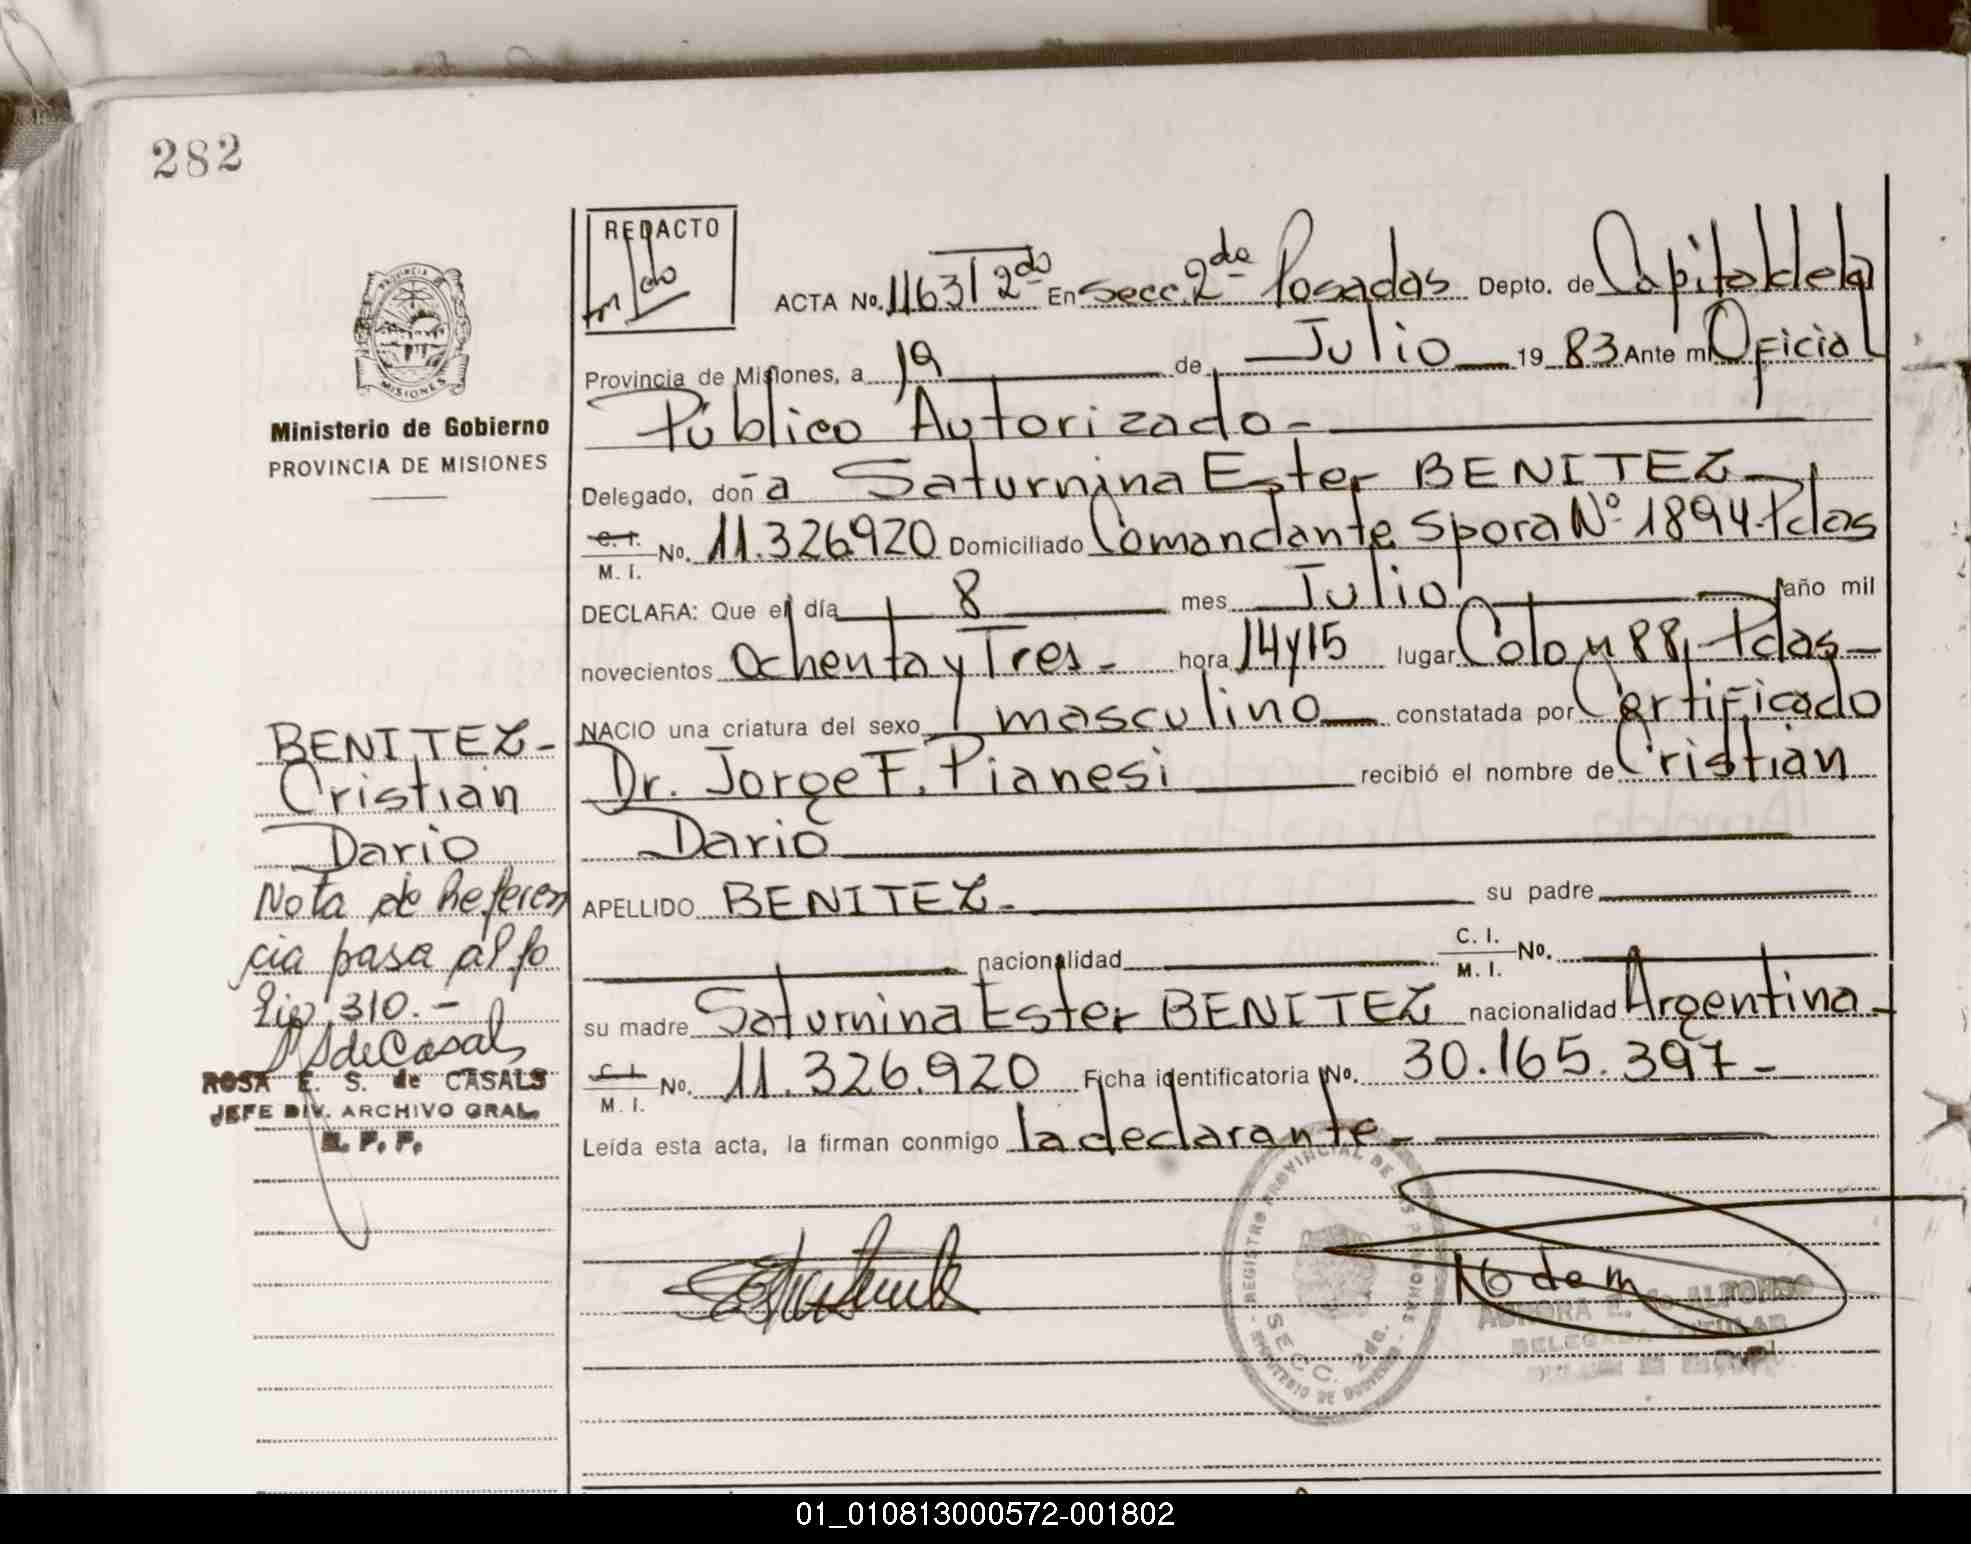 282
REDACTO
ACTA No. 1163 T 2do En Secc. 2da Posadas Depto. de Capital de la
Provincia de Misiones, a 19 de Julio 1983 Ante mi Oficial
Público Autorizado -
Delegado, doña Saturnina Ester BENITEZ
C. I. M. I. No. 11.326920 Domiciliado Comandante Spora Nº 1894-Pdas
DECLARA: Que el día 8 mes Julio año mil
novecientos Ochenta y Tres - hora 14 y 15 lugar Colon 88, Pdas -
NACIO una criatura del sexo masculino constatada por Certificado
Dr. Jorge F. Pianesi recibió el nombre de Cristian
Dario
APELLIDO BENITEZ - su padre
nacionalidad C. I. M. I. No.
su madre Saturnina Ester BENITEZ nacionalidad Argentina -
C. I. M. I. No. 11.326.920 Ficha identificatoria No. 30.165.397 -
Leída esta acta, la firman conmigo la declarante -
PROVINCIA
MISIONES
Ministerio de Gobierno
PROVINCIA DE MISIONES
BENITEZ -
Cristian
Dario
Nota de Referen
cia pasa al fo
lio 310. -
ROSA E. S. de CASALS
JEFE DIV. ARCHIVO GRAL.
R. P. P.
REGISTRO PROVINCIAL DE LAS PERSONAS
SECC. 2da.
MINISTERIO DE GOBIERNO
AURORA E. de ALFONSO
DELEGADA TITULAR
01_010813000572-001802